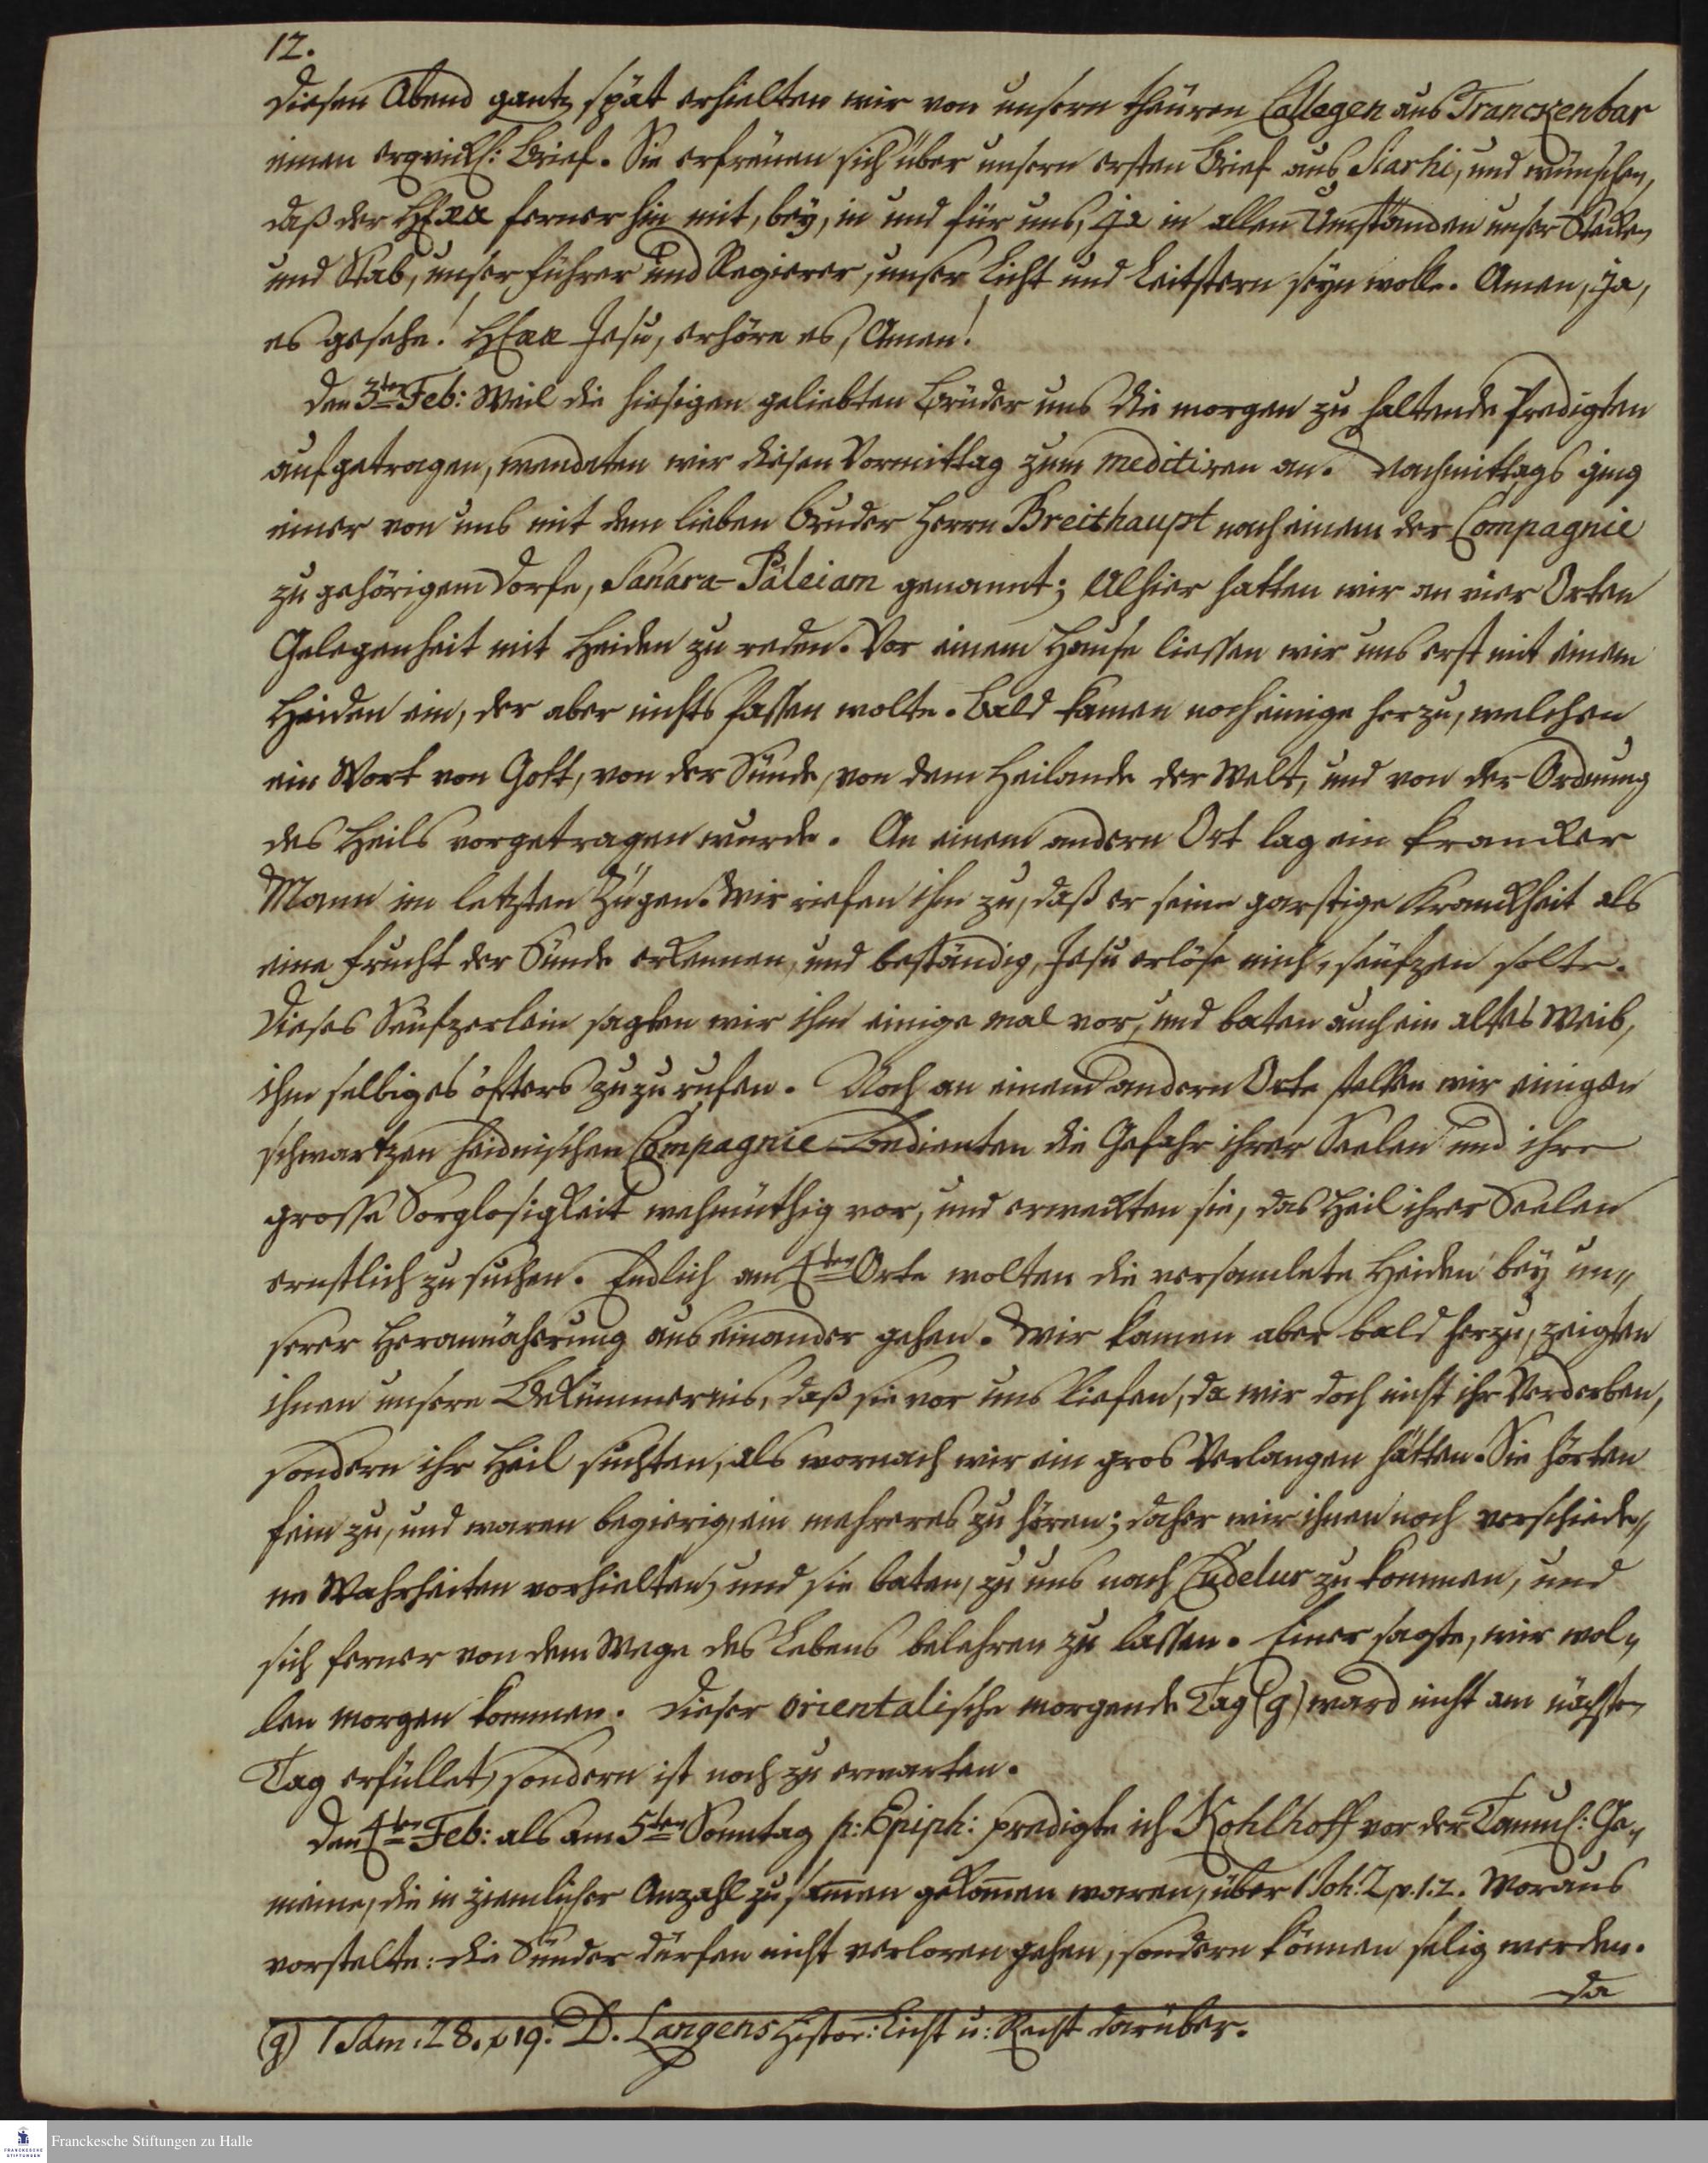 12.
diesen Abend gantz spät erhielten wir von unsern theuren Collegen aus Tranckenbar
einen erquickl: Brief. Sie erfreuen sich über unsern ersten Brief aus Siarhi, und wünschen,
daß der HErr ferner hin mit, bey, in und für uns, ja in allen Umständen unser Stecken
und Stab, unser Führer und Regierer, unser Licht und Leitstern seyn wolle. Amen, ja,
es geschehe! HErr Jesu, erhöre es, Amen!
Den 3ten Feb: Weil die hiesigen geliebten Brüder uns die morgen zu haltende Predigten
aufgetragen, wendeten wir diesen Vormittag zum meditiren an. Nachmittags ging
einer von uns mit dem lieben Bruder Herrn Breithaupt nach einem der Compagnie
zu gehörigem Dorfe, Sanara-Páleiam genannt; Alhier hatten wir an vier Orten
Gelegenheit mit Heiden zu reden. Vor einem Hause liessen wir uns erst mit einem
Heiden ein, der aber nichts fassen wolte. Bald kamen noch einige herzu, welchen
ein Wort von Gott, von der Sünde, von dem Heilande der Welt, und von der Ordnung
des Heils vorgetragen wurde. An einem andern Ort lag ein krancker
Mann in letzten Zügen. Wir riefen ihm zu, daß er seine garstige Kranckheit als
eine Frucht der Sünde erkennen, und beständig, Jesu erlöse mich, seufzen solte.
Dieses Seufzerlein sagten wir ihm einige mal vor, und baten auch ein altes Weib,
ihm selbiges öfters zuzurufen. Noch an einem andern Orte stelten wir einigen
schwartzen heidnischen Compagnie-Bedienten die Gefahr ihrer Seelen und ihre
grosse Sorglosigkeit wehmüthig vor, und erweckten sie, das Heil ihrer Seelen
ernstlich zu suchen. Endlich am 4ten Orte wolten die versamlete Heiden bey un„
serer Herannäherung aus einander gehen. Wir kamen aber bald herzu, zeigten
ihnen unsere Bekümmernis, daß sie vor uns liefen, da wir doch nicht ihr Verderben,
sondern ihr Heil suchten, als wornach wir ein gros Verlangen hätten. Sie hörten
fein zu, und waren begierig, ein mehreres zu hören; daher wir ihnen noch verschiede„
ne Wahrheiten vorhielten, und sie baten, zu uns nach Cudelur zu kommen, und
sich ferner von dem Wege des Lebens belehren zu lassen. Einer sagte, wir wol„
len morgen kommen. Dieser orientalische morgende Tag (g) ward nicht am nächsten
Tag erfüllet, sondern ist noch zu erwarten.
Den 4ten Feb: als am 5ten Sonntag p: Epiph: predigte ich Kohlhoff vor der Tamul: Ge„
meine, die in ziemlicher Anzahl zusam̄en gekom̄en waren, über 1 Joh: 2, v. 1. 2. Woraus
vorstelte: die Sünder dürfen nicht verloren gehen, sondern können selig werden.
da
(g) 1 Sam: 28. v 19. D. Langens Histor: Licht u: Recht darüber.
FRANCKESCHE STIFTUNGEN
Franckesche Stiftungen zu Halle